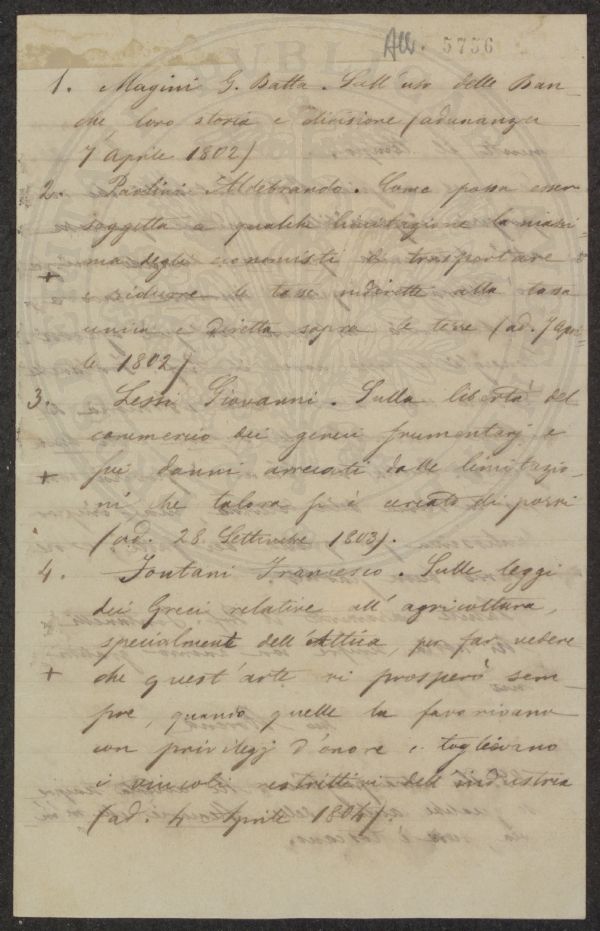 All. 5736
1. Magini G. Batta. Sull'uso delle Ban-
che, loro storia e divisione (adunanza
7 Aprile 1802)
2. Paolini Aldebrando. Come possa esser
soggetta a qualche limitazione la massi-
+ ma degli economisti di trasportare
e ridurre le tasse indirette alla tassa
unica e diretta sopra le terre (ad. 7 Apri-
le 1802).
3. Lessi Giovanni. Sulla libertà del
commercio dei generi frumentarj e
+ pei danni arrecati dalle limitazio-
ni che talora si è cercato di porvi
(ad. 28 Settembre 1803).
4. Fontani Francesco. Sulle leggi
dei Greci relative all'agricoltura,
specialment dell'Attica, per far vedere
+ che quest'arte vi prosperò sem-
pre, quando quelle la favorivano
con privilegj d'onore e toglievano
i vincoli restrittivi dell'industria
(ad. 4 Aprile 1804).